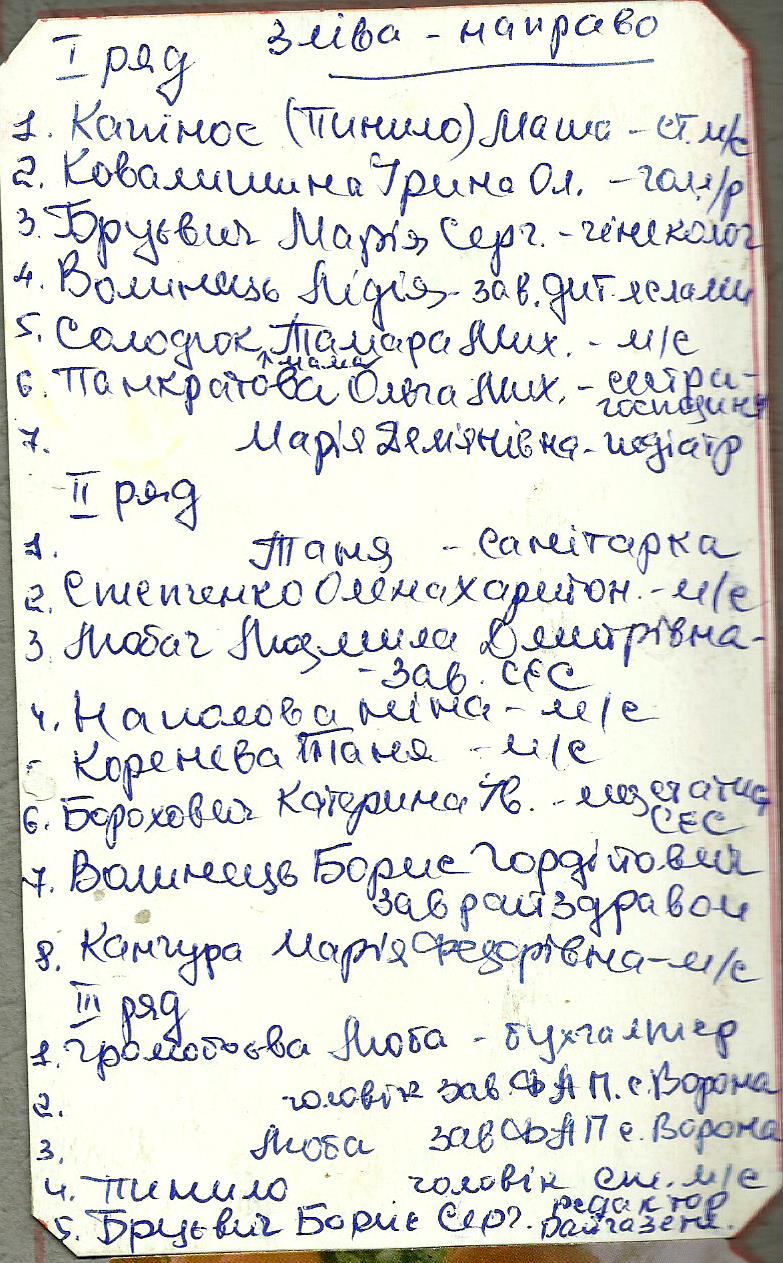 Зліва - направо
І ряд
1. Капінос (Пинило) Маша - ст. м/с
2. Ковалишина Ірина Ол. -
3. Бруєвич Марія Серг. - гінеколог
4. Волинець Лідія - зав. дит яслами
5. Солодюк Тамара Мих. - м/с
мама
6. Панкратова Ольга Мих. - сестра-
господиня
7. Марія Дем'янівна - педіатр
ІІ ряд
1. Таня - санітарка
2. Степченко Олена Харитон. - м/с
3. Любач Людмила Дмитрівна -
- зав. СЕС
4. Напалова Ніна - м/с
Коренєва Таня - м/с
6. Борохович Катерина Ів. -
СЕС
7. Волинець Борис Гордійович
зав райздравом
8. Канчура Марія Федорівна - м/с
ІІІ ряд
1. Громобоєва Люба - бухгалтер
2. чоловік зав. ФАП. с. Ворона
3. Люба зав ФАП с. Ворона
4. Пинило чоловік ст. м/с
5. Бруєвич Борис Серг. редактор
райгазети.